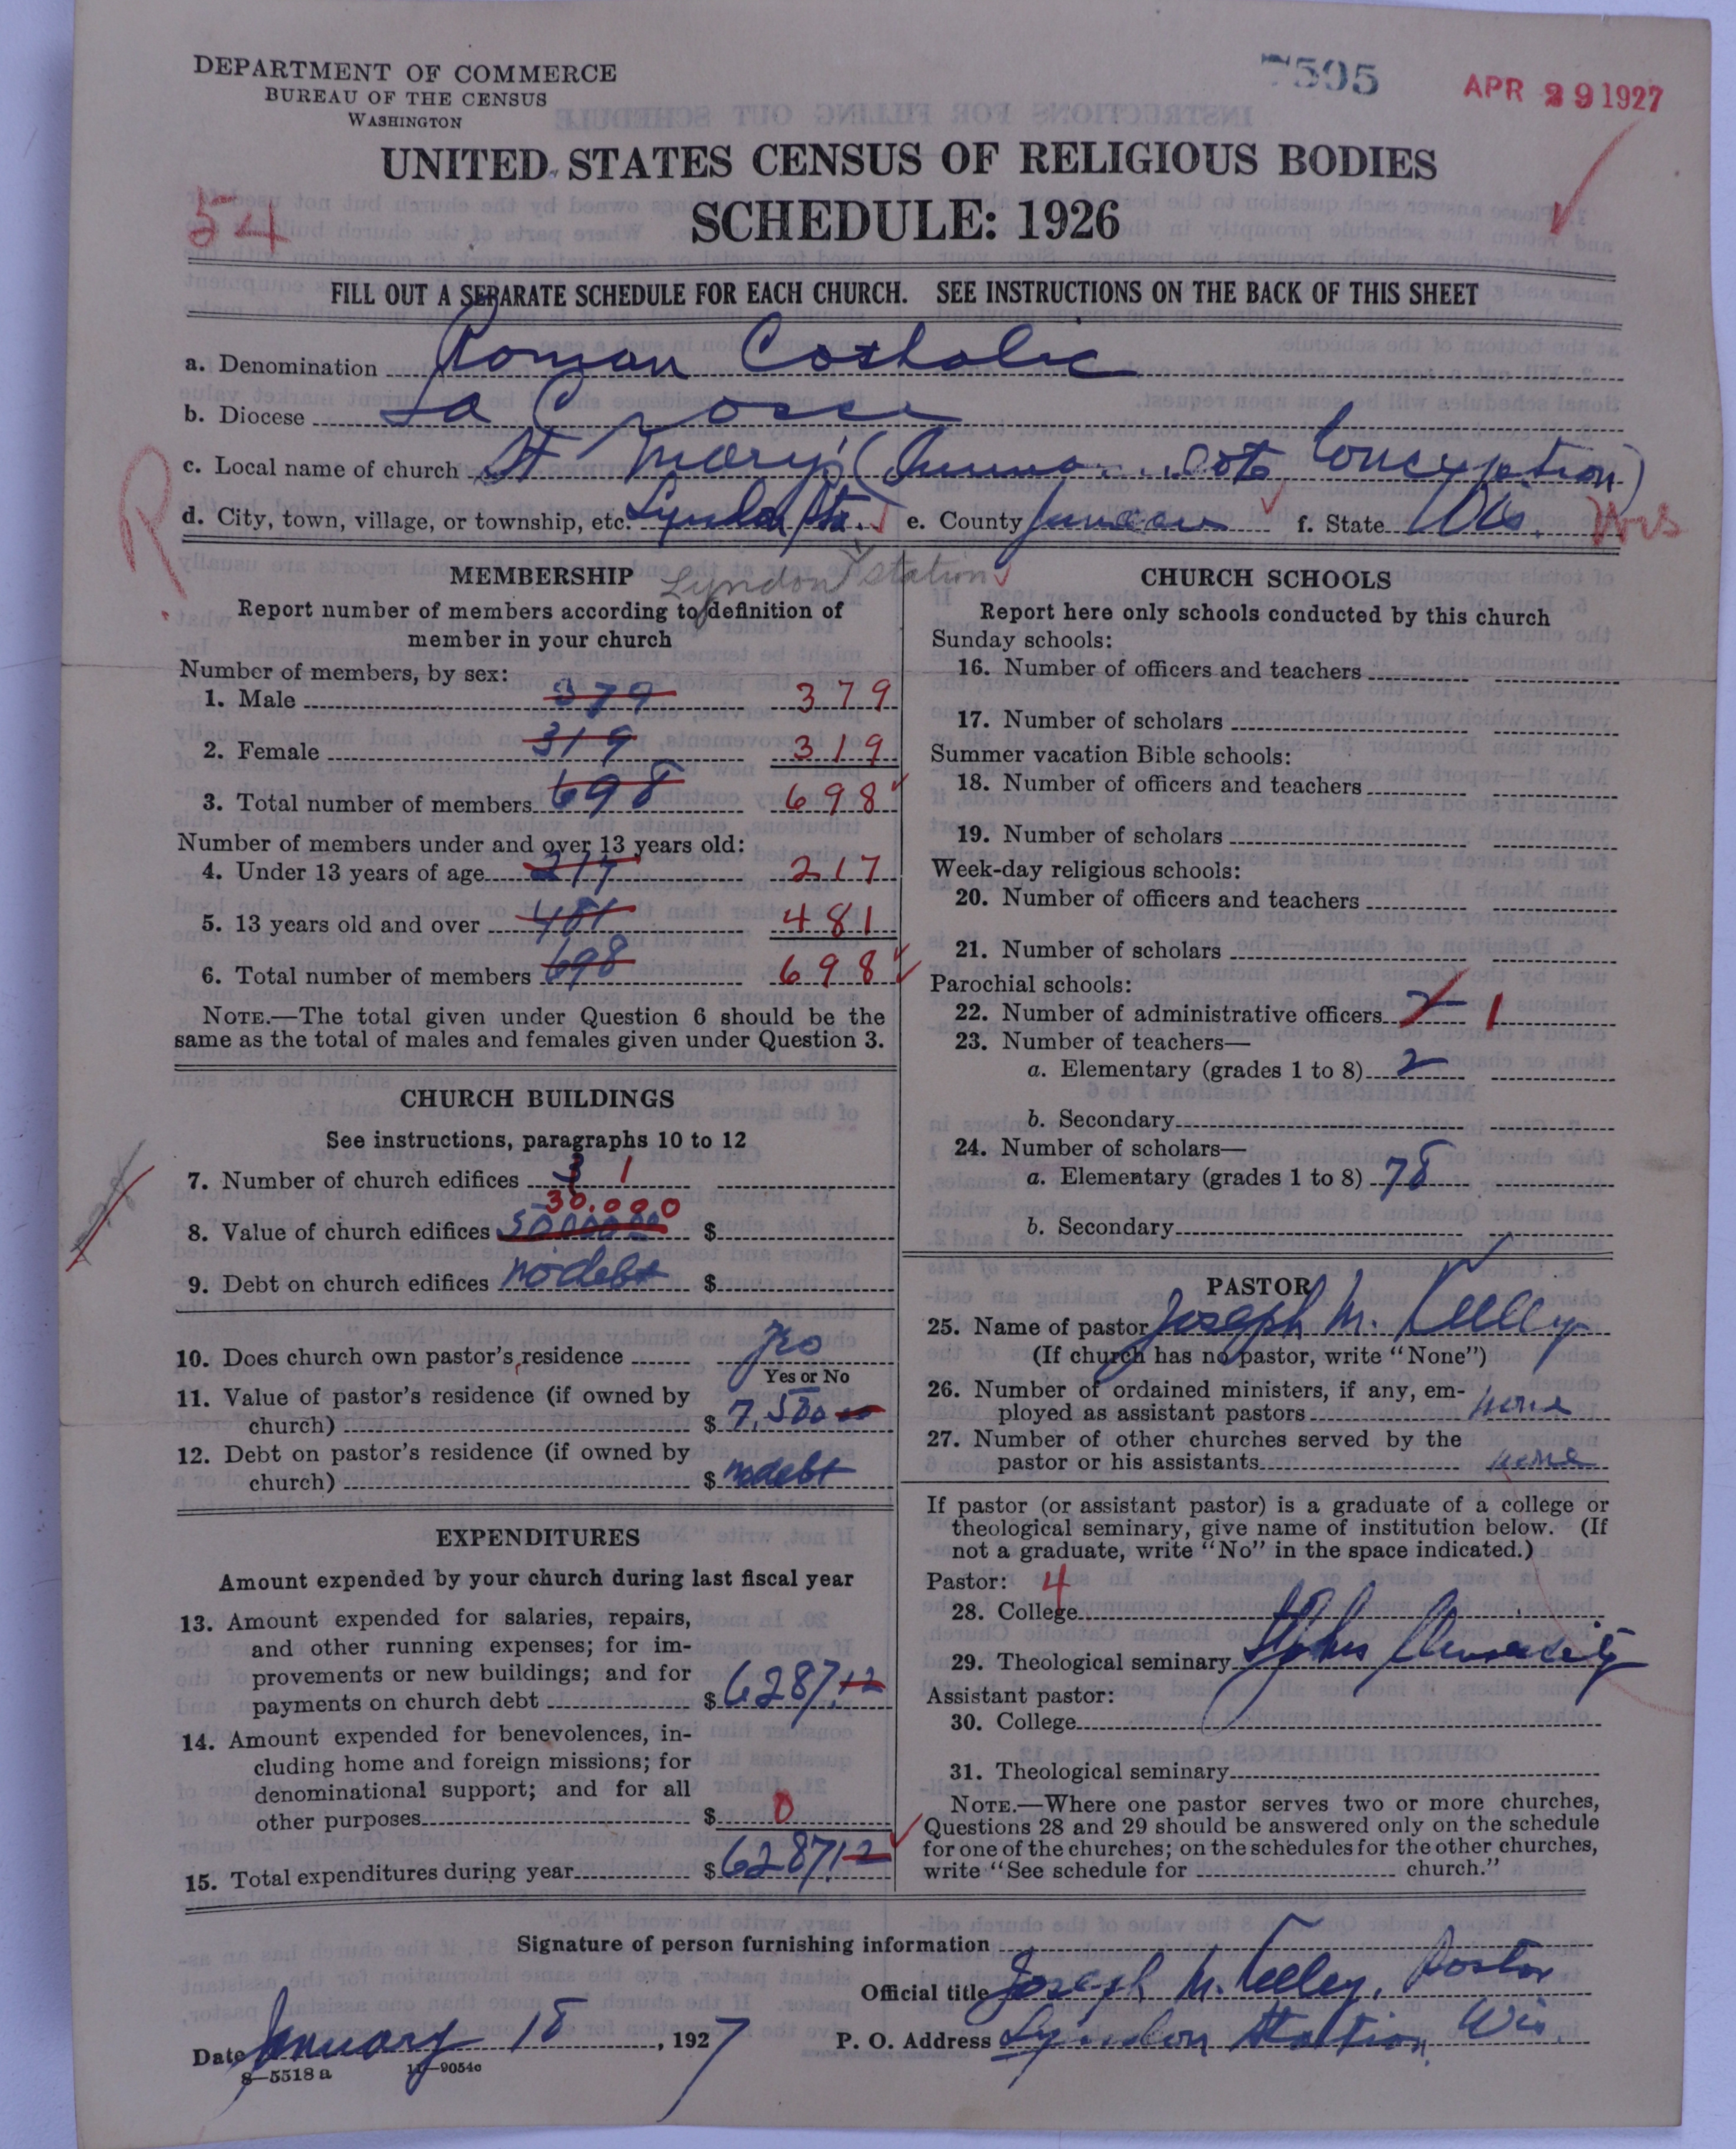 DEPARTMENT OF COMMERCE
BUREAU OF THE CENSUS
WASHINGTON
7595
APR 29 1927
UNITED STATES CENSUS OF RELIGIOUS BODIES
54
SCHEDULE: 1926
FILL OUT A SEPARATE SCHEDULE FOR EACH CHURCH. SEE INSTRUCTIONS ON THE BACK OF THIS SHEET
a. Denomination Roman Catholic
b. Diocese La Crosse
c. Local name of church St Mary's (Conception)
R
d. City, town, village, or township, etc. Lyndon Sta. e. County Juneau f. State Wis. Wis
Lyndon Station
MEMBERSHIP
Report number of members according to definition of
member in your church
Number of members, by sex:
1. Male 379 379
2. Female 319 319
3. Total number of members 698 698
Number of members under and over 13 years old:
4. Under 13 years of age 217 217
5. 13 years old and over 481 481
6. Total number of members 698 698
NOTE.—The total given under Question 6 should be the
same as the total of males and females given under Question 3.
CHURCH BUILDINGS
See instructions, paragraphs 10 to 12
7. Number of church edifices 3 1
30.000
8. Value of church edifices 50000.00 $
9. Debt on church edifices no debt $
10. Does church own pastor's residence
Yes or No
11. Value of pastor's residence (if owned by
church) $ 7,500
12. Debt on pastor's residence (if owned by
church) $ no debt
EXPENDITURES
Amount expended by your church during last fiscal year
13. Amount expended for salaries, repairs,
and other running expenses; for im-
provements or new buildings; and for
payments on church debt $ 6287.12
14. Amount expended for benevolences, in-
cluding home and foreign missions; for
denominational support; and for all
other purposes $ 0
15. Total expenditures during year $ 6287.12
CHURCH SCHOOLS
Report here only schools conducted by this church
Sunday schools:
16. Number of officers and teachers
17. Number of scholars
Summer vacation Bible schools:
18. Number of officers and teachers
19. Number of scholars
Week-day religious schools:
20. Number of officers and teachers
21. Number of scholars
Parochial schools:
22. Number of administrative officers 2 1
23. Number of teachers—
a. Elementary (grades 1 to 8) 2
b. Secondary
24. Number of scholars—
a. Elementary (grades 1 to 8) 78
b. Secondary
PASTOR
25. Name of pastor Joseph M. Kelley
(If church has no pastor, write "None")
26. Number of ordained ministers, if any, em-
ployed as assistant pastors none
27. Number of other churches served by the
pastor or his assistants none
If pastor (or assistant pastor) is a graduate of a college or
theological seminary, give name of institution below. (If
not a graduate, write "No" in the space indicated.)
Pastor: 4
28. College
29. Theological seminary St Johns University
Assistant pastor:
30. College
31. Theological seminary
NOTE.—Where one pastor serves two or more churches,
Questions 28 and 29 should be answered only on the schedule
for one of the churches; on the schedules for the other churches,
write "See schedule for church."
Signature of person furnishing information
Official title Joseph M. Kelley, Pastor
Date January 18, 1927 P. O. Address Lyndon Station, Wis.
8—5518 a 11—9054c